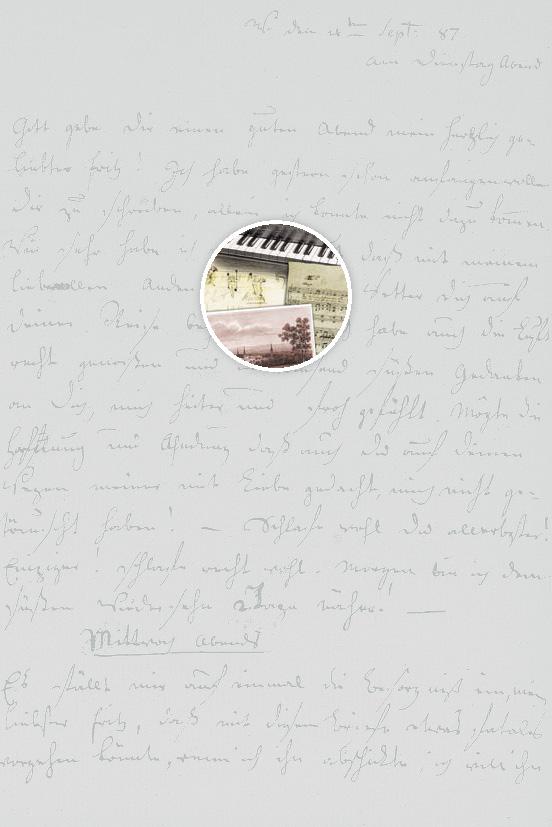 den 18ten Sept: 87
am Dienstag Abend
Gott gebe Dir einen guten Abend mein herzlich ge-
liebter Fritz! Ich habe gestern schon anfangen wollen
Dir zu schreiben, allein ich konnte nicht dazu kommen.
sehr habe ich daß mit meinem
liebevollen Wetter Dich auf
Deiner Reise habe auch die Luft
recht genossen und süßen Gedanken
an Dich, mich heiter und froh gefühlt. Mögte die
Hoffnung und Ahndung daß auch Du auf Deinen
Wegen meiner mit Liebe gedacht, mich nicht ge-
täuscht haben! — Schlafe wohl Du allerbester!
Einziger! schlafe recht wohl. Morgen bin ich dem
süßen Wiedersehn 2 Tage näher! —
Mittwoch Abends
Es fällt mir auf einmal die Besorgniß ein, mein
liebster Fritz, daß mit diesem Briefe etwas fatales
vorgehen könnte, wenn ich ihn abschickte, ich will ihn